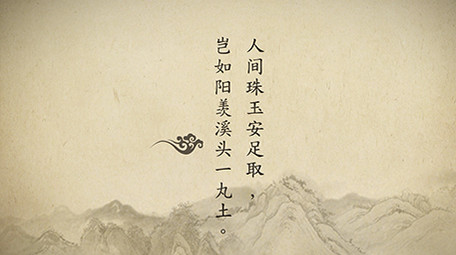 人间珠玉安足取，
岂如阳羡溪头一丸土。